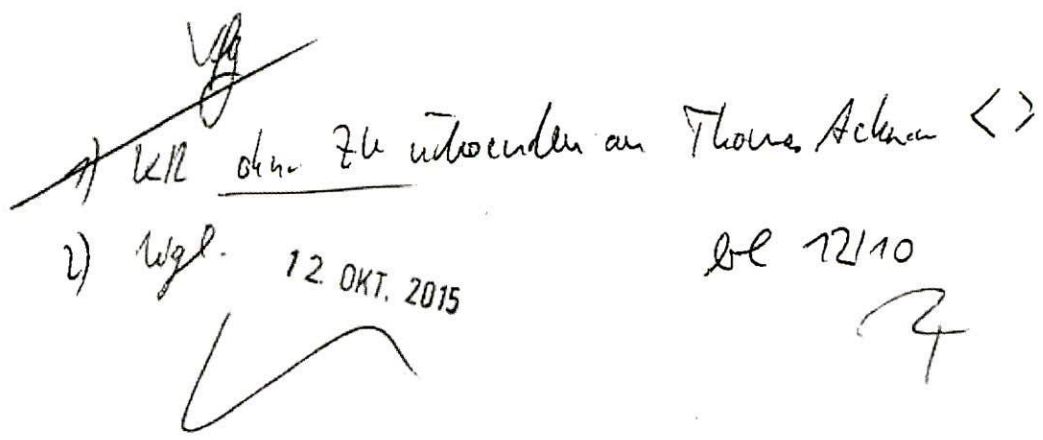 Vfg
1) KR ohne ZU übersenden an Thomas Ackerman <>
2) Wgl. 12. OKT. 2015
erl 12/10